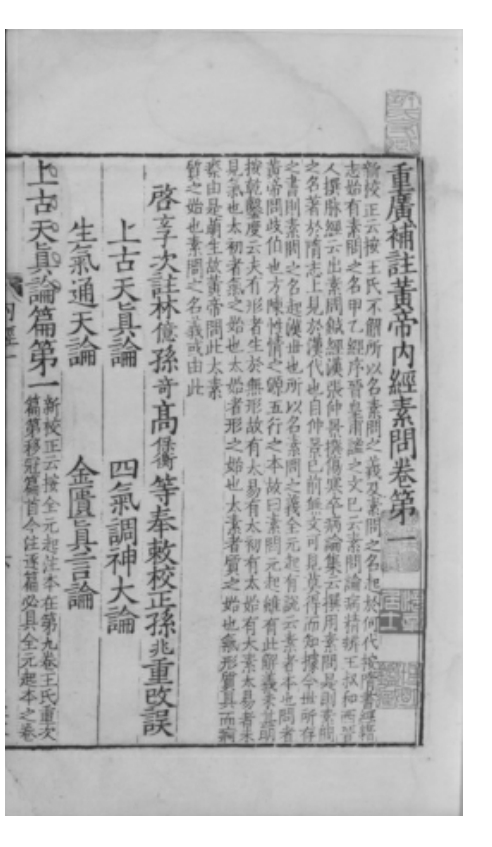 重廣補註黃帝內經素問卷第一
新校正云按王氏不解所以名素問之義及素問之名起於何代按隋書經籍
志始有素問之名甲乙經序晉皇甫謐之文已云素問論病精辨王叔和西晉
人撰脉經云出素問鍼經漢張仲景撰傷寒卒病論集云撰用素問是則素問
之名著於隋志上見於漢代也自仲景已前無文可見莫得而知據今世所存
之書則素問之名起漢世也所以名素問之義全元起有說云素者本也問者
黃帝問歧伯也方陳性情之源五行之本故曰素問元起雖有此解義未甚明
按乾鑿度云夫有形者生於無形故有太易有太初有太始有太素太易者未
見氣也太初者氣之始也太始者形之始也太素者質之始也氣形質具而痾
瘵由是萌生故黃帝問此太素
質之始也素問之名義或由此
啓玄子次註林億孫奇高保衡等奉敕校正孫兆重改誤
上古天真論 四氣調神大論
生氣通天論 金匱真言論
上古天真論篇第一
新校正云按全元起注本在第九卷王氏重次
篇第移冠篇首今注逐篇必具全元起本之卷
內經一